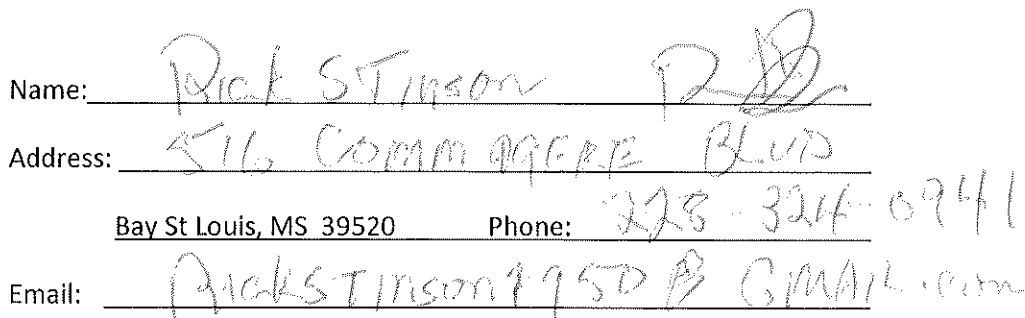 Name: Rick STinson
Address: 516 COMMAGERE BLVD
Bay St Louis, MS 39520 Phone: 228-324-0941
Email: RickSTinson1950@GMAIL.com